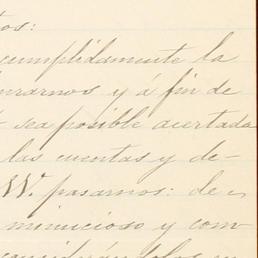 tos:
cumplidamente la
rarnos y á fin de
sea posible acertada
las cuentas y de-
VV. pasarnos: de
minucioso y com-